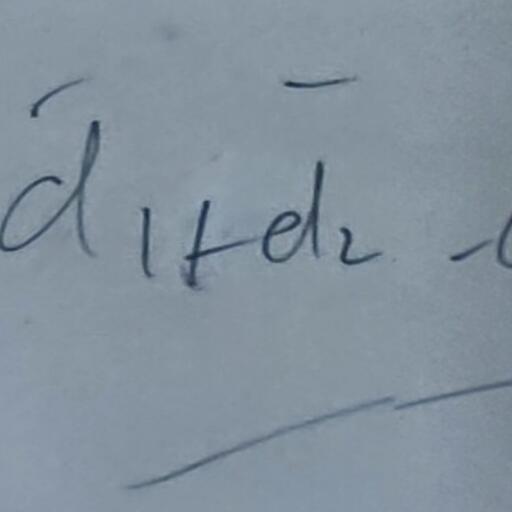 d̄₁ + d̄₂ -